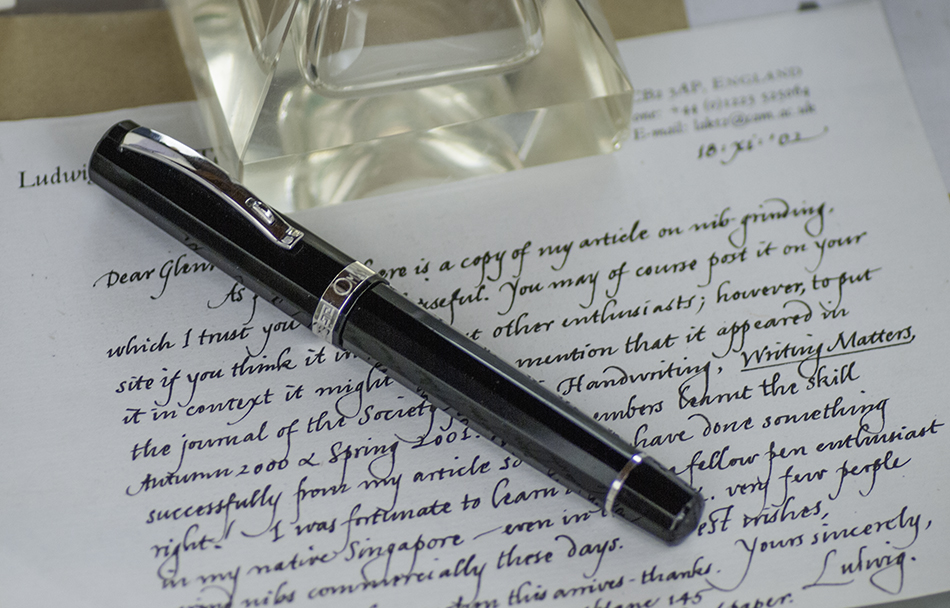 CB2 3AP, ENGLAND
+44 (0)1223 525084
E-mail: lakt2@cam.ac.uk
18·xi·'02
Ludwig
Dear Glenn here is a copy of my article on nib-grinding.
As useful. You may of course post it on your
which I trust you other enthusiasts; however, to put
site if you think it mention that it appeared in
it in context it might Handwriting, Writing Matters,
the journal of the Society members learnt the skill
Autumn 2000 & Spring 2001. have done something
successfully from my article so fellow pen enthusiast
right." I was fortunate to learn very few people
in my native Singapore — even in best wishes,
nibs commercially these days. Yours sincerely,
this arrives - thanks. Ludwig.
145 paper.